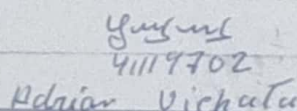 41119702
Adrian Vichata